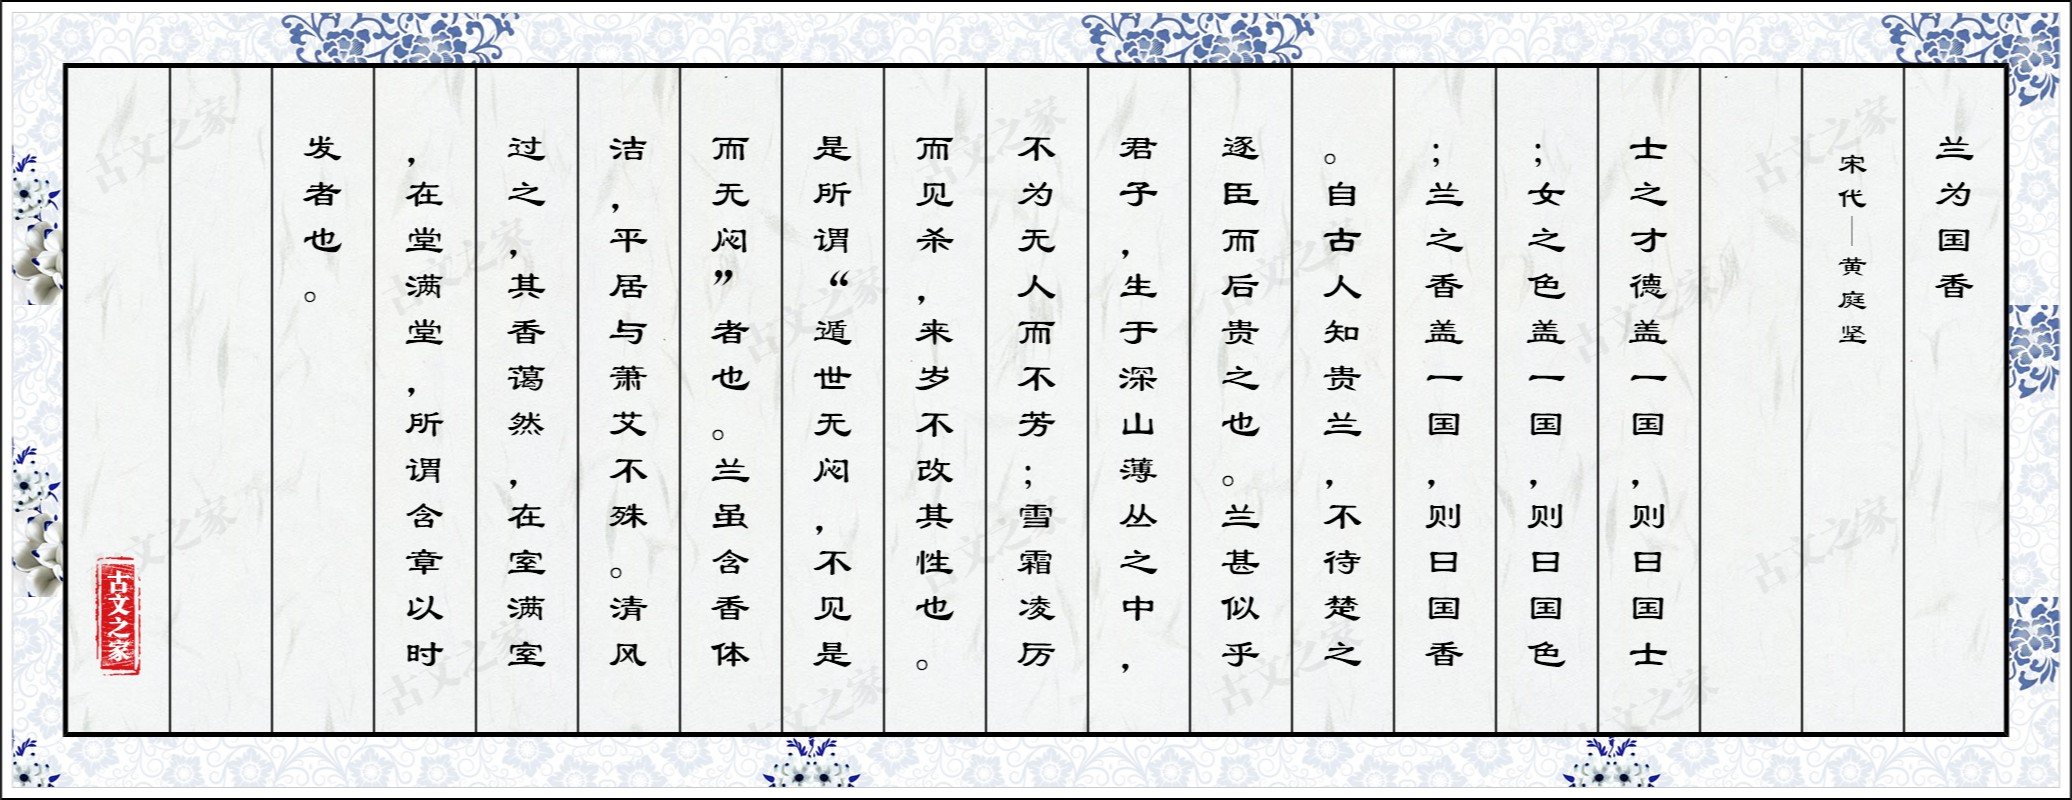 兰为国香
宋代—黄庭坚
士之才德盖一国，则曰国士
；女之色盖一国，则曰国色
；兰之香盖一国，则曰国香
。自古人知贵兰，不待楚之
逐臣而后贵之也。兰甚似乎
君子，生于深山薄丛之中，
不为无人而不芳；雪霜凌厉
而见杀，来岁不改其性也。
是所谓“遁世无闷，不见是
而无闷”者也。兰虽含香体
洁，平居与萧艾不殊。清风
过之，其香蔼然，在室满室
，在堂满堂，所谓含章以时
发者也。
古文之家